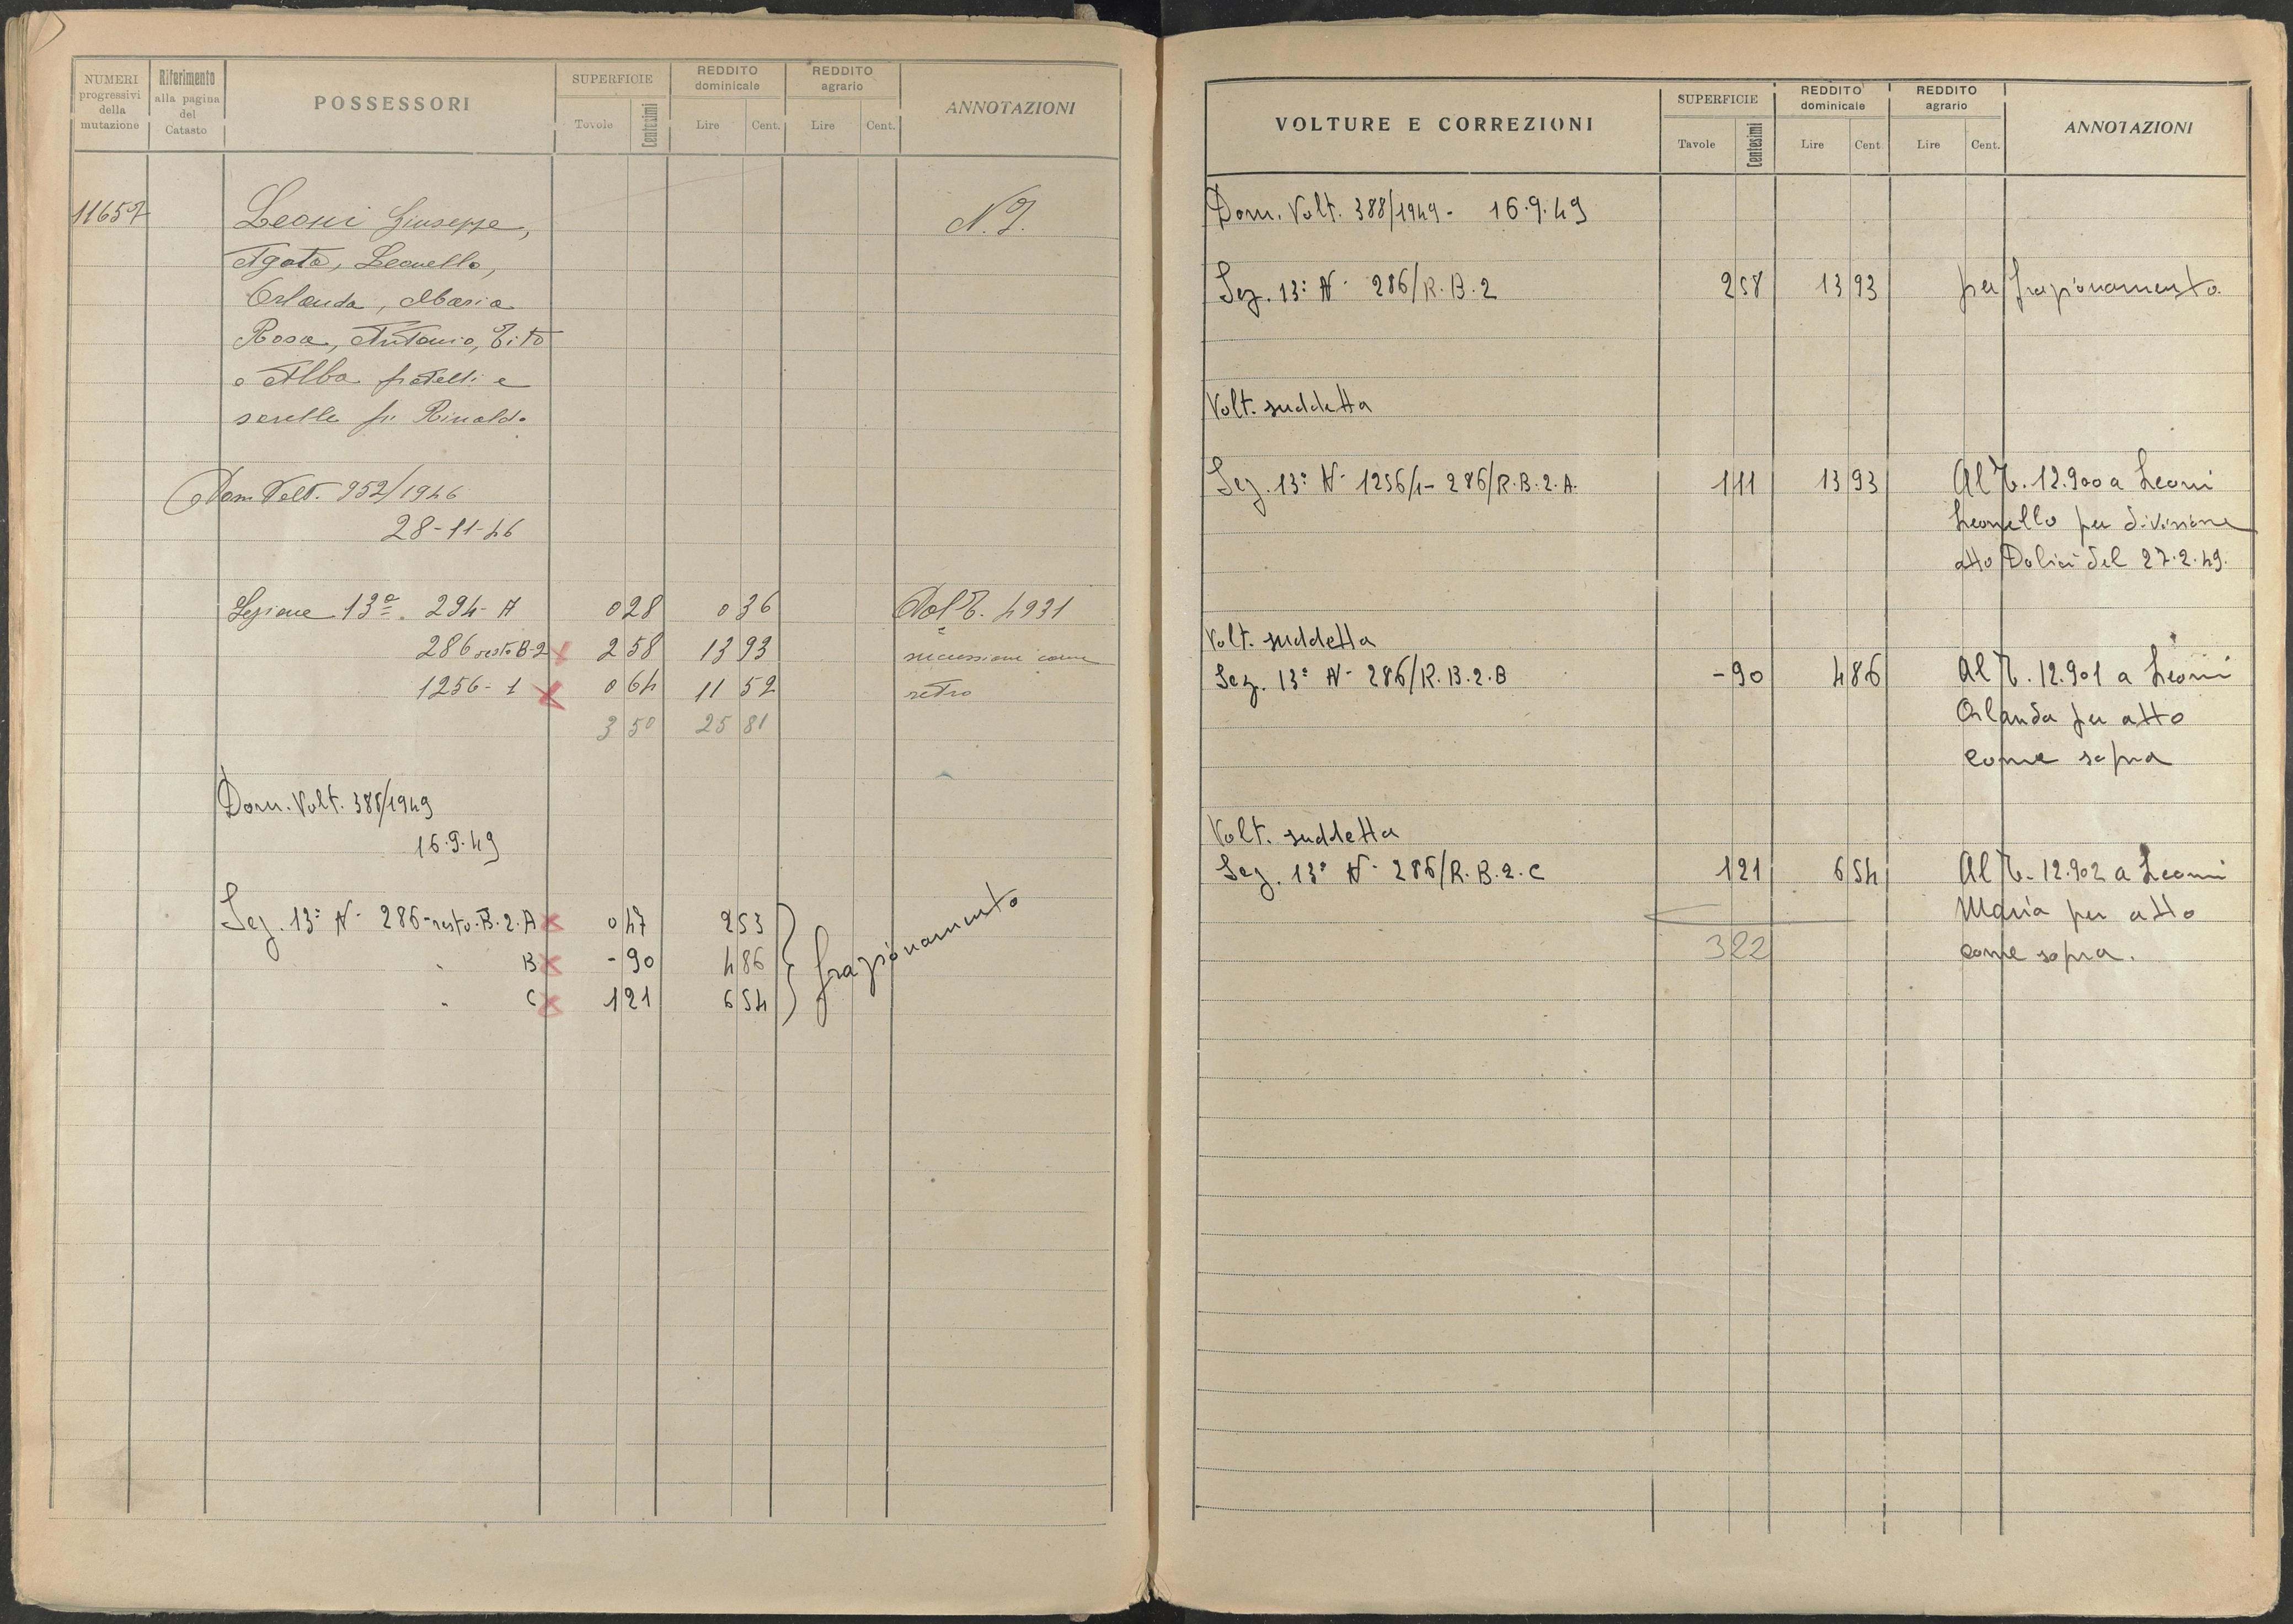 NUMERI progressivi della mutazione | Riferimento alla pagina del Catasto | POSSESSORI | SUPERFICIE Tavole Centesimi | REDDITO dominicale Lire Cent. | REDDITO agrario Lire Cent. | ANNOTAZIONI
11657 Leoni Giuseppe, N.I.
Agata, Leonello,
Orlanda, Maria
Rosa, Antonio, Tito
e Alba fratelli e
sorelle fu Rinaldo
Dom. Volt. 952/1946
28-11-46
Sezione 13ª. 294-A 0 28 0 36 Dal T. 4931
286 resto B-2 x 2 58 13 93 successione come
1256-1 x 0 64 11 52 retro
3 50 25 81
Dom. Volt. 388/1949
16.9.49
Sez. 13ª N. 286-resto.B.2.A x 0 47 2 53
" B x - 90 4 86 frazionamento
" C x 1 21 6 54
VOLTURE E CORREZIONI | SUPERFICIE Tavole Centesimi | REDDITO dominicale Lire Cent | REDDITO agrario Lire Cent. | ANNOTAZIONI
Dom. Volt. 388/1949 - 16.9.49
Sez. 13ª N. 286/R.B.2 2 58 13 93 per frazionamento
Volt. suddetta
Sez. 13ª N. 1256/1 - 286/R.B.2.A. 1 11 13 93 Al T. 12.900 a Leoni
Leonello per divisione
atto Dolici del 27.2.49.
Volt. suddetta
Sez. 13ª N. 286/R.B.2.B - 90 4 86 Al T. 12.901 a Leoni
Orlanda per atto
come sopra
Volt. suddetta
Sez. 13ª N. 286/R.B.2.C 1 21 6 54 Al T. 12.902 a Leoni
Maria per atto
322 come sopra.